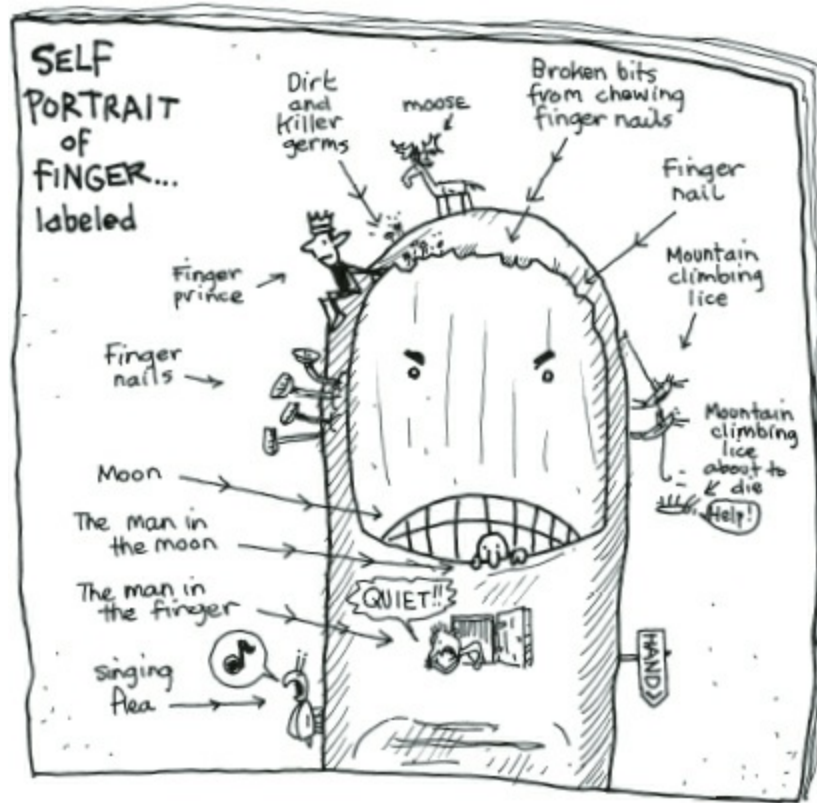 SELF
PORTRAIT
of
FINGER...
labeled
Dirt
and
Killer
germs
moose
Broken bits
from chewing
finger nails
Finger
nail
Finger
prince
Mountain
climbing
lice
Finger
nails
Mountain
climbing
lice
about to
die
Help!
Moon
The man in
the moon
The man in
the finger
QUIET!!
singing
flea
HAND